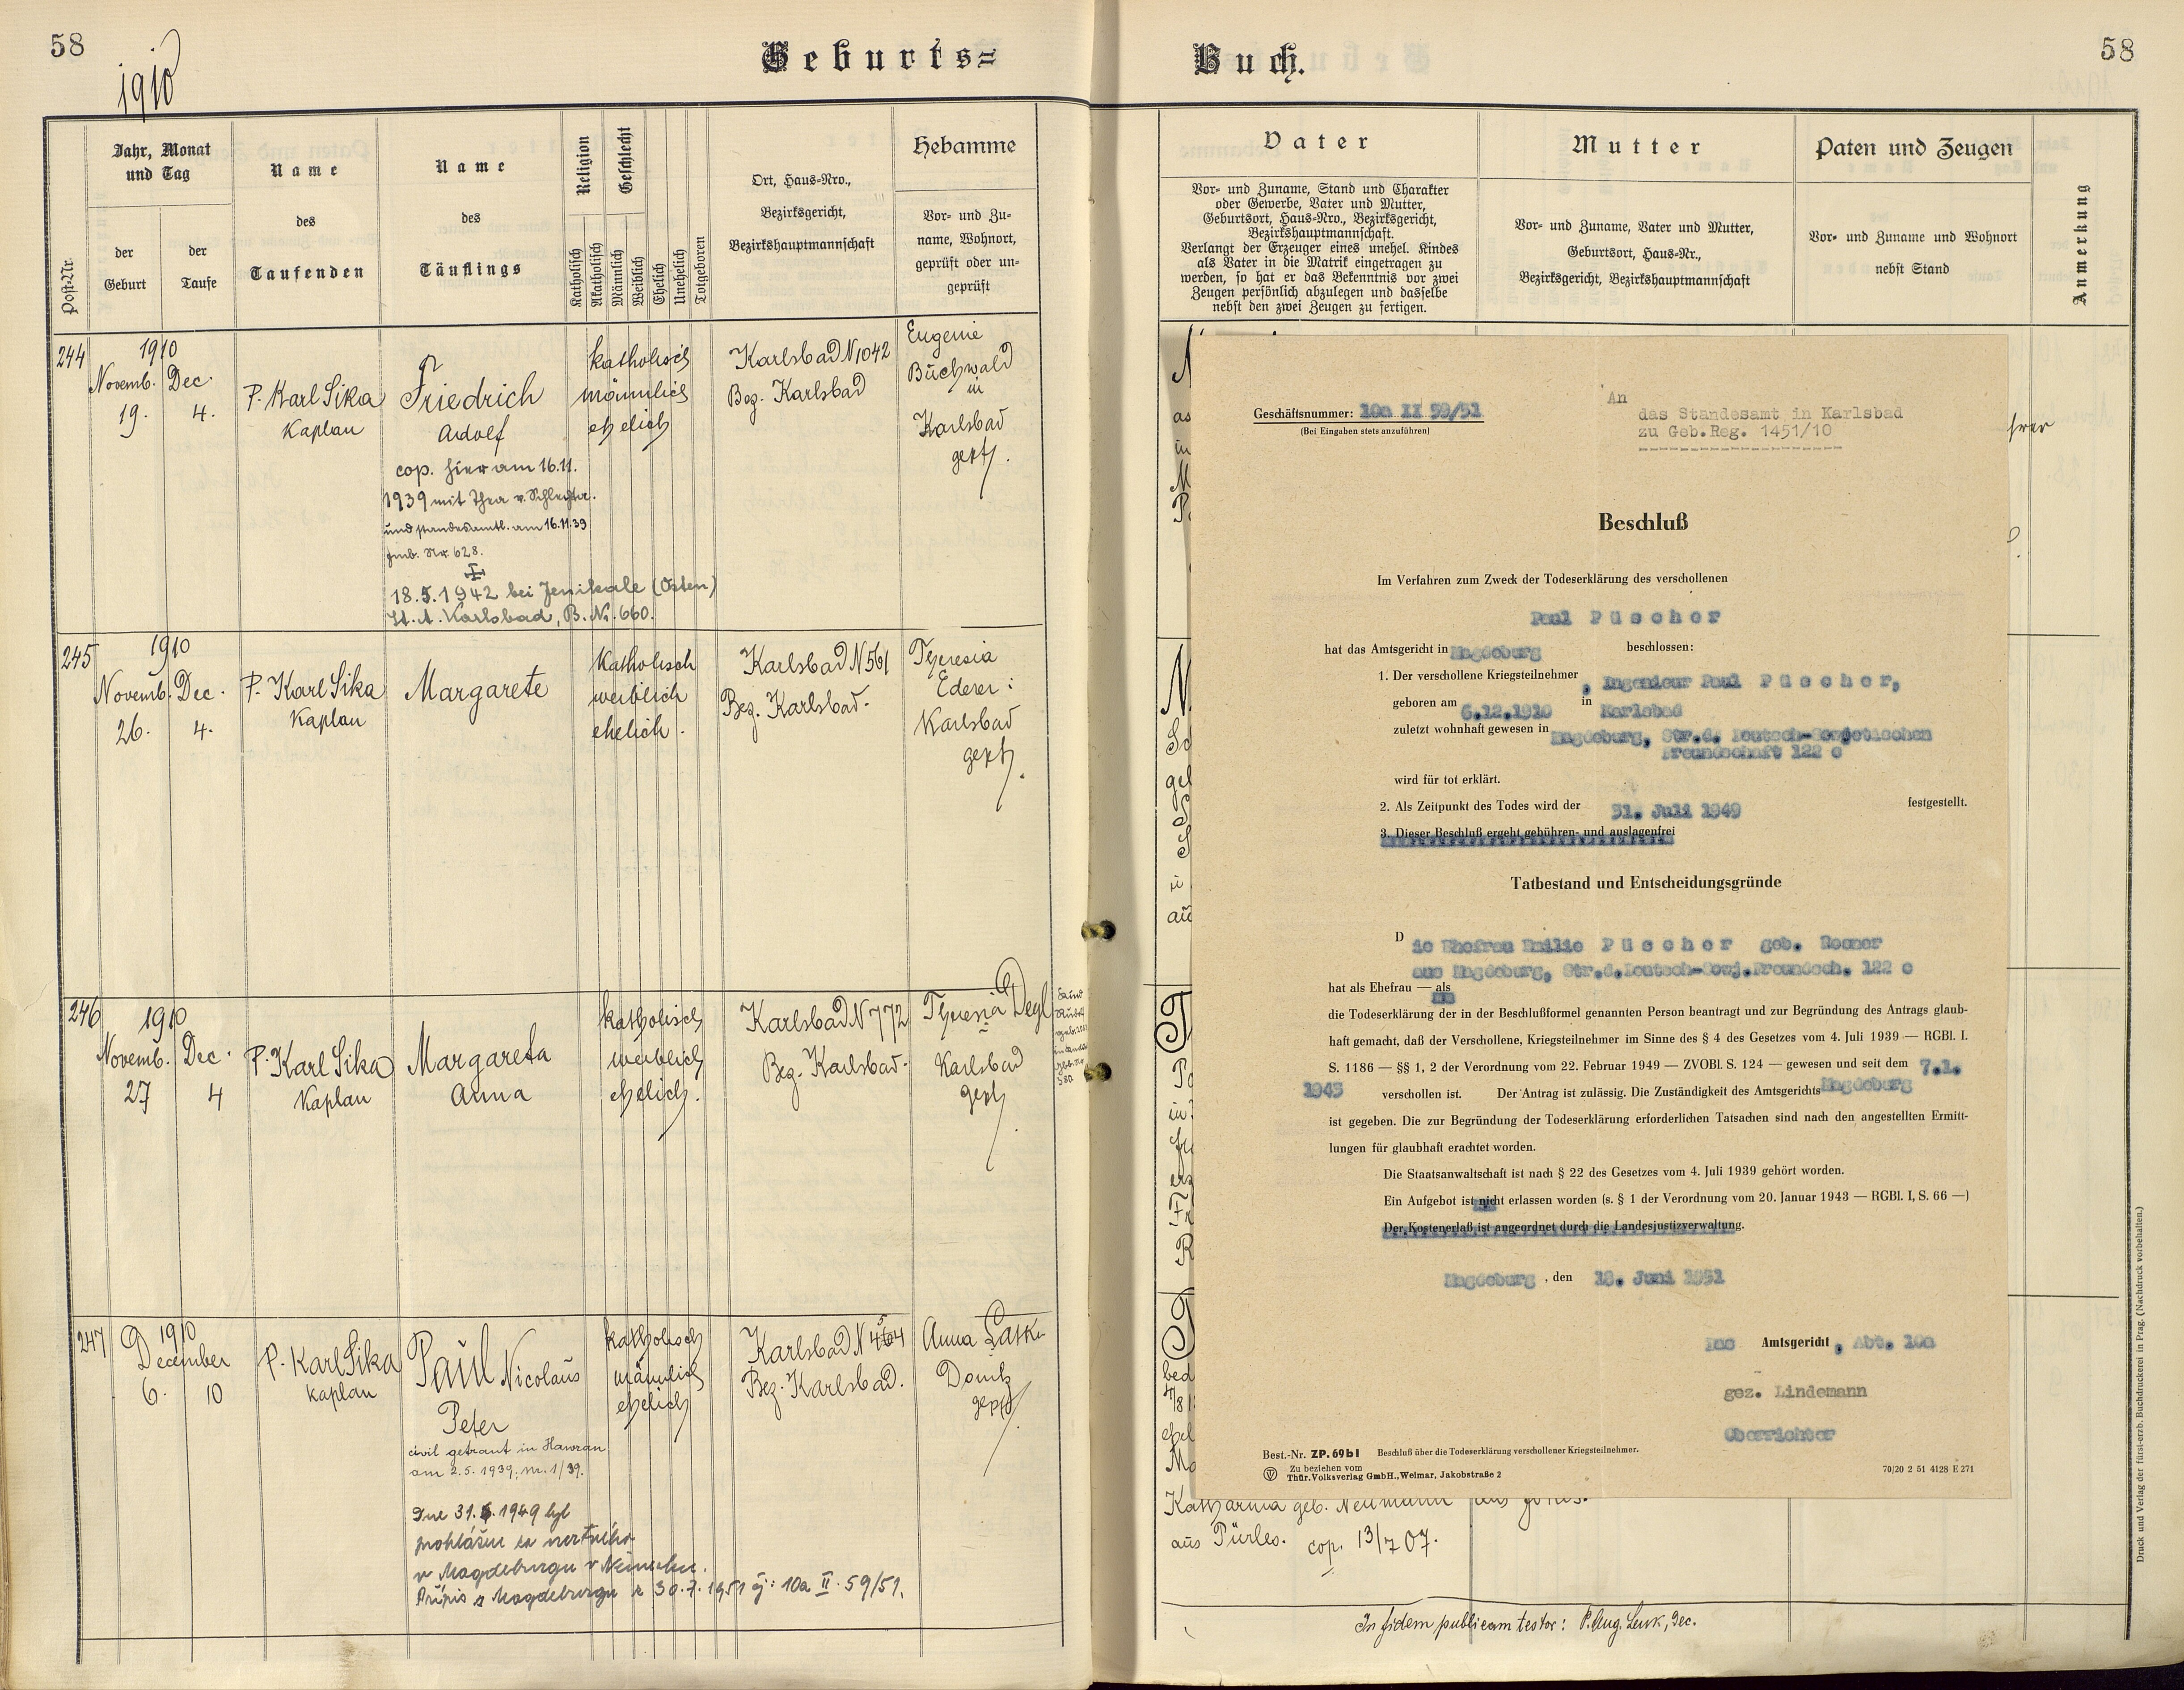 58
1910
Geburts=
Post-Nr.
Jahr, Monat
und Tag
der
Geburt
der
Taufe
Name
des
Taufenden
Name
des
Täuflings
Religion
Katholisch
Akatholisch
Geschlecht
Männlich
Weiblich
Ehelich
Unehelich
Totgeboren
Ort, Haus=Nro.,
Bezirksgericht,
Bezirkshauptmannschaft
Hebamme
Vor= und Zu=
name, Wohnort,
geprüft oder un=
geprüft
244
1910
Novemb. Dec.
19. 4.
P. Karl Sika
Kaplan
Friedrich
Adolf
cop. hier am 16.11.
1939 mit Thea v. Schlechta.
und standesamtl. am 16.11.39
Nr. 628.
18.5.1942 bei Jenikale (Osten)
St. A. Karlsbad, B. N. 660.
katholisch
männlich
ehelich
Karlsbad N 1042
Bez. Karlsbad
Eugenie
Buchwald
in
Karlsbad
gepft.
245
1910
Novemb. Dec.
26. 4.
P. Karl Sika
Kaplan
Margarete
Katholisch
weiblich
ehelich.
Karlsbad N 561
Bez. Karlsbad.
Theresia
Ederer:
Karlsbad
gepft.
246
1910
Novemb. Dec.
27 4
P. Karl Sika
Kaplan
Margareta
Anna
katholisch
weiblich
ehelich.
Karlsbad N 772
Bez. Karlsbad.
Theresia Degl
Karlsbad
gepft.
247
1910
December
6. 10
P. Karl Sika
Kaplan
Paul Nicolaus
Peter
civil getraut in Hawran
am 2.5.1939, nr. 1/39.
Dne 31. 1949 byl
prohlášen za mrtvého
v Magdeburgu v Německu.
Přípis z Magdeburgu z 30.7.1951 čj: 10a II. 59/51.
katholisch
männlich
ehelich
Karlsbad N
Bez. Karlsbad.
Anna
Donitz
gepft.
58
Buch.
Vater
Vor= und Zuname, Stand und Charakter
oder Gewerbe, Vater und Mutter,
Geburtsort, Haus=Nro., Bezirksgericht,
Bezirkshauptmannschaft.
Verlangt der Erzeuger eines unehel. Kindes
als Vater in die Matrik eingetragen zu
werden, so hat er das Bekenntnis vor zwei
Zeugen persönlich abzulegen und dasselbe
nebst den zwei Zeugen zu fertigen.
Mutter
Vor= und Zuname, Vater und Mutter,
Geburtsort, Haus=Nr.,
Bezirksgericht, Bezirkshauptmannschaft
Paten und Zeugen
Vor= und Zuname und Wohnort
nebst Stand
Anmerkung
Geschäftsnummer: 10a II 59/51
(Bei Eingaben stets anzuführen)
An
das Standesamt in Karlsbad
zu Geb.Reg. 1451/10
Beschluß
Im Verfahren zum Zweck der Todeserklärung des verschollenen
Paul Püscher
hat das Amtsgericht in Magdeburg beschlossen:
1. Der verschollene Kriegsteilnehmer, Ingenieur Paul Püscher,
geboren am 6.12.1910 in Karlsbad
zuletzt wohnhaft gewesen in Magdeburg, Str.d. Deutsch-Sowjetischen
Freundschaft 122 c
wird für tot erklärt.
2. Als Zeitpunkt des Todes wird der 31. Juli 1949 festgestellt.
3. Dieser Beschluß ergeht gebühren- und auslagenfrei
Tatbestand und Entscheidungsgründe
Die Ehefrau Emilie Püscher geb. Rosner
aus Magdeburg, Str.d.Deutsch-Sowj.Freundsch. 122 c
hat als Ehefrau — als
die Todeserklärung der in der Beschlußformel genannten Person beantragt und zur Begründung des Antrags glaub-
haft gemacht, daß der Verschollene, Kriegsteilnehmer im Sinne des § 4 des Gesetzes vom 4. Juli 1939 — RGBl. I.
S. 1186 — §§ 1, 2 der Verordnung vom 22. Februar 1949 — ZVOBl. S. 124 — gewesen und seit dem 7.1.
1943 verschollen ist. Der Antrag ist zulässig. Die Zuständigkeit des Amtsgerichts Magdeburg
ist gegeben. Die zur Begründung der Todeserklärung erforderlichen Tatsachen sind nach den angestellten Ermitt-
lungen für glaubhaft erachtet worden.
Die Staatsanwaltschaft ist nach § 22 des Gesetzes vom 4. Juli 1939 gehört worden.
Ein Aufgebot ist nicht erlassen worden (s. § 1 der Verordnung vom 20. Januar 1943 — RGBl. I, S. 66 —)
Der Kostenerlaß ist angeordnet durch die Landesjustizverwaltung.
Magdeburg, den 18. Juni 1951
Das Amtsgericht, Abt. 10a
gez. Lindemann
Oberrichter
Best.-Nr. ZP. 69 b I Beschluß über die Todeserklärung verschollener Kriegsteilnehmer.
Zu beziehen vom
Thür. Volksverlag GmbH., Weimar, Jakobstraße 2
70/20 2 51 4128 E 271
Katharina geb. Neumann aus
aus Pürles. cop. 13/7 07.
In fidem publicam testor: P. Aug. Lenk, Dec.
Druck und Verlag der fürst-erzb. Buchdruckerei in Prag. (Nachdruck vorbehalten.)